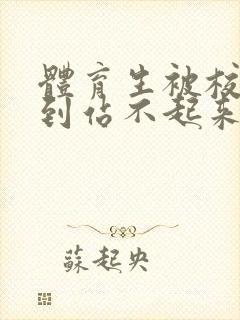 體育生被校
到佔不起來
蘇起央